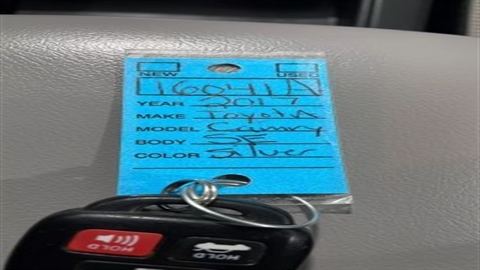 NEW USED
16041A
YEAR 2017
MAKE Toyota
MODEL Camry
BODY SE
COLOR Silver
HOLD HOLD